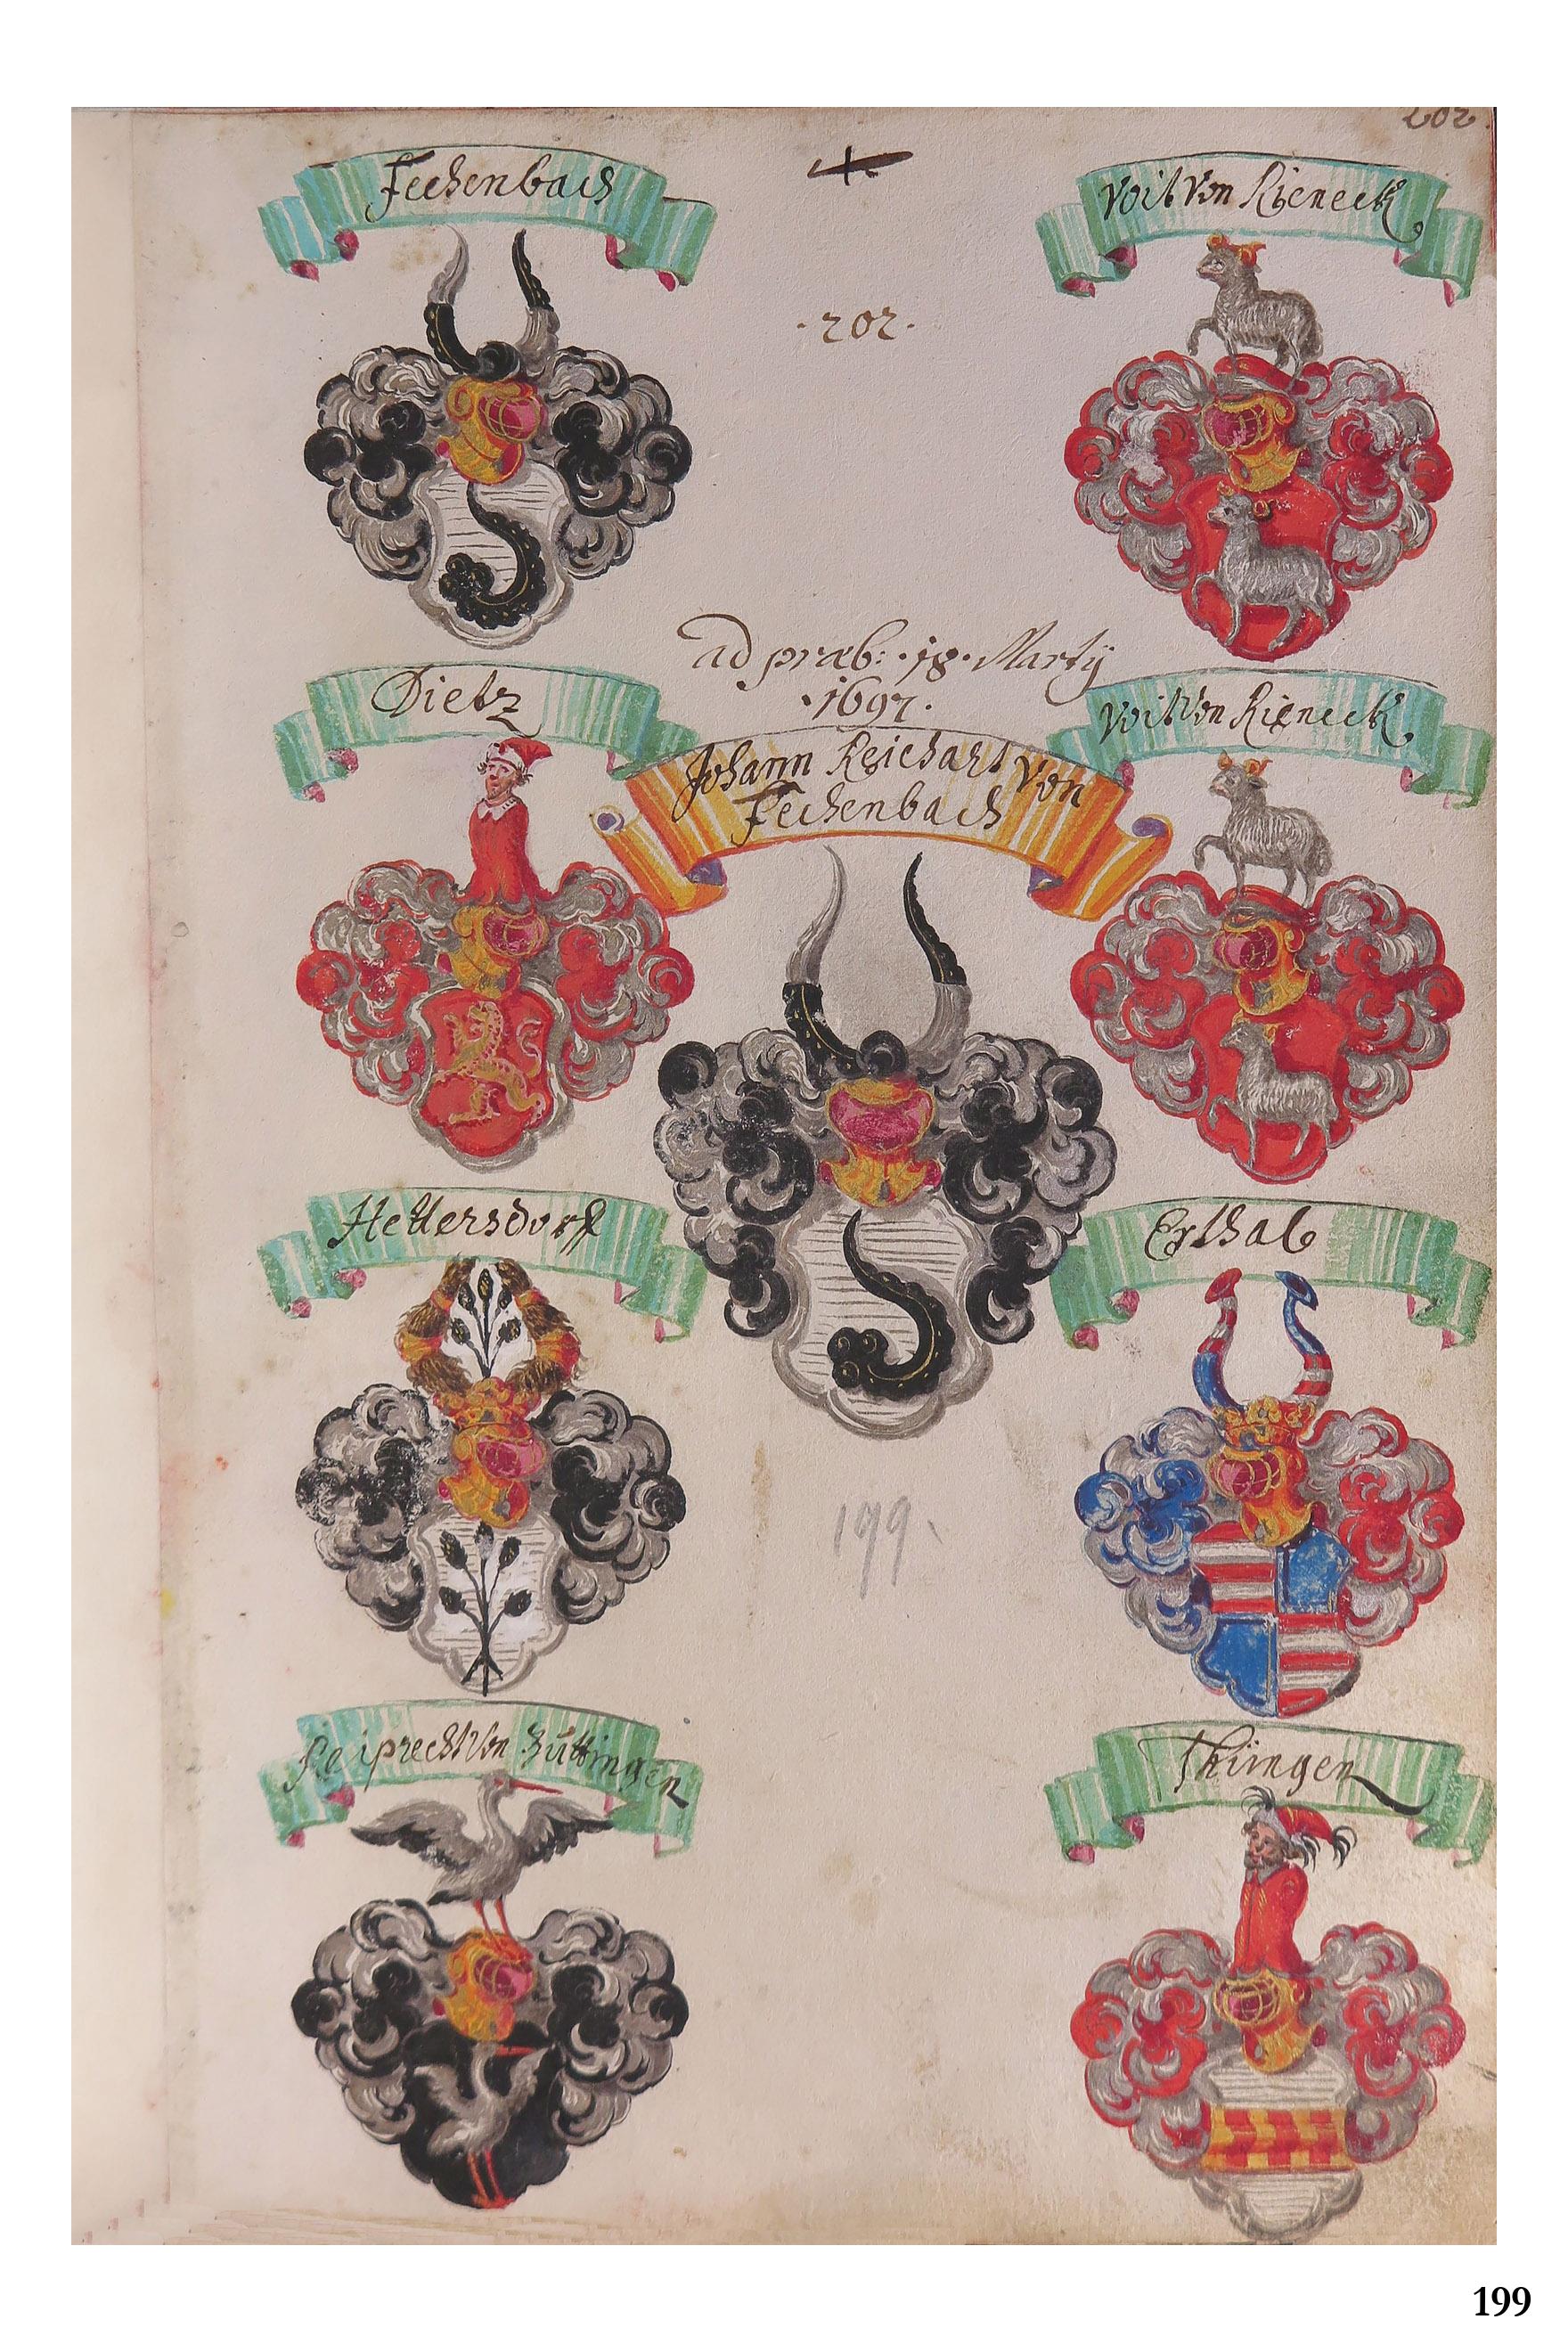 202
Fechenbach
Voit Von Rieneck
·202·
ad præb: ·18· Martÿ
·1697·
Dietz
Voit Von Rieneck
Johann Reichart Von
Fechenbach
Hettersdorff
Erthal
199
Von
Thüngen
199